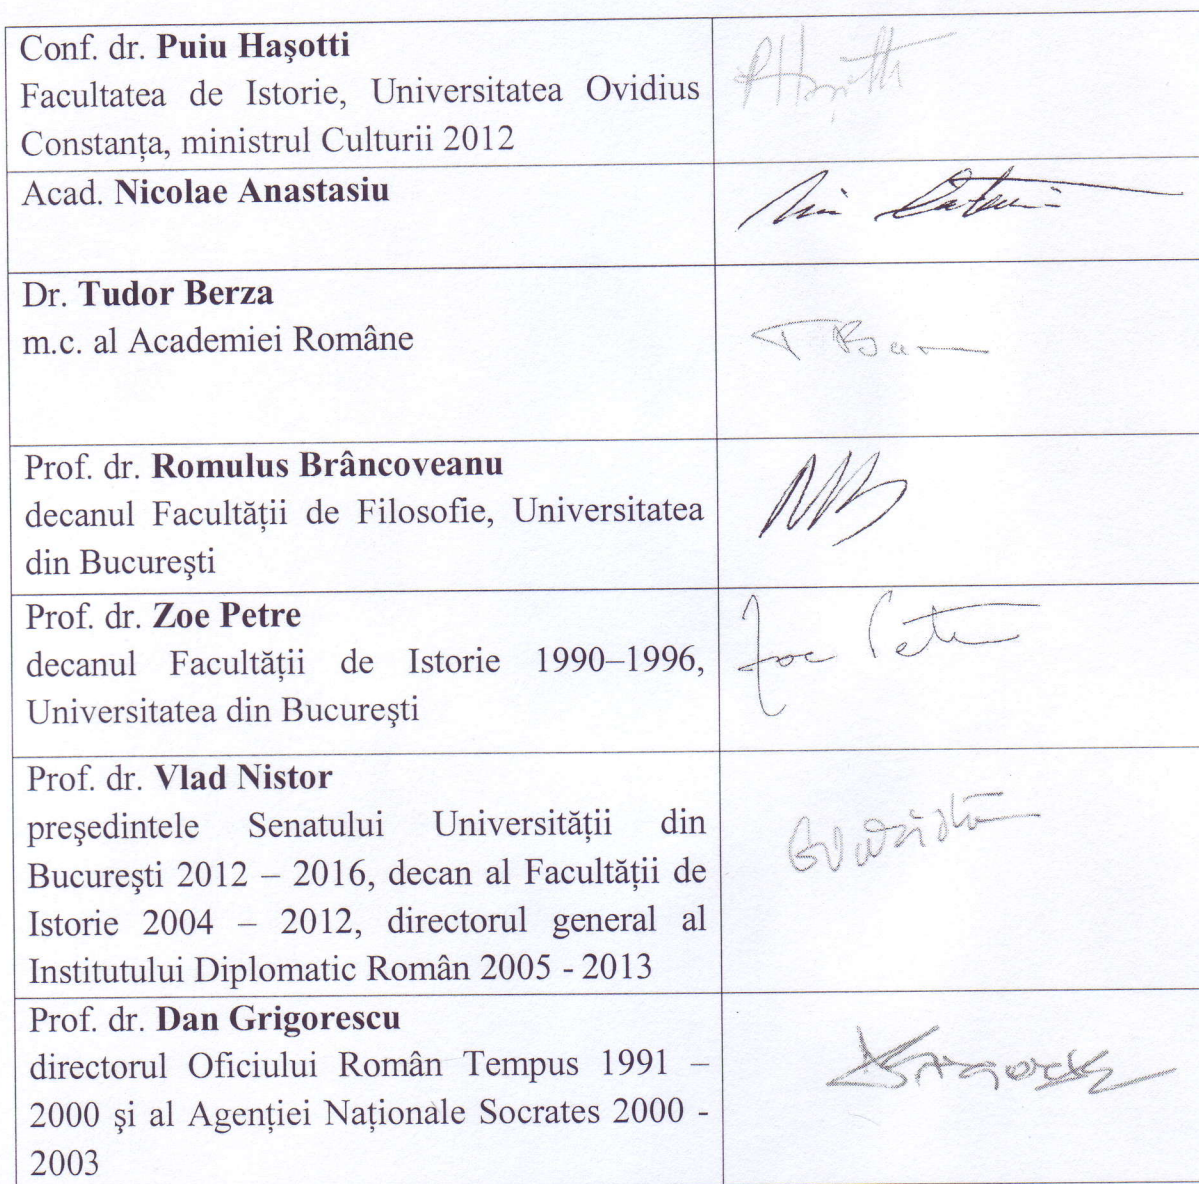 Conf. dr. Puiu Haşotti
Facultatea de Istorie, Universitatea Ovidius
Constanța, ministrul Culturii 2012
Acad. Nicolae Anastasiu
Dr. Tudor Berza
m.c. al Academiei Române
T Ber
Prof. dr. Romulus Brâncoveanu
decanul Facultății de Filosofie, Universitatea
din Bucureşti
Prof. dr. Zoe Petre
decanul Facultății de Istorie 1990–1996,
Universitatea din Bucureşti
Zoe Petre
Prof. dr. Vlad Nistor
preşedintele Senatului Universității din
Bucureşti 2012 – 2016, decan al Facultății de
Istorie 2004 – 2012, directorul general al
Institutului Diplomatic Român 2005 - 2013
Prof. dr. Dan Grigorescu
directorul Oficiului Român Tempus 1991 –
2000 şi al Agenției Naționale Socrates 2000 -
2003